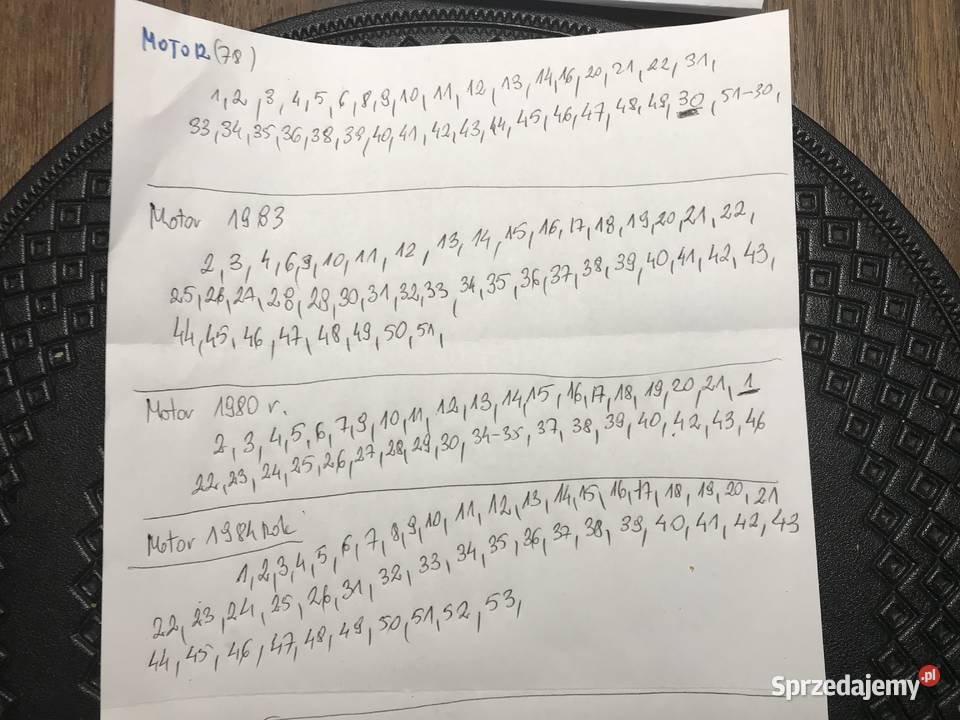 MOTOR (78)
1, 2, 3, 4, 5, 6, 8, 9, 10, 11, 12, 13, 14, 16, 20, 21, 22, 31,
33, 34, 35, 36, 38, 39, 40, 41, 42, 43, 44, 45, 46, 47, 48, 49, 30, 51-30,
Motor 1983
2, 3, 4, 6, 9, 10, 11, 12, 13, 14, 15, 16, 17, 18, 19, 20, 21, 22,
25, 26, 27, 28, 29, 30, 31, 32, 33, 34, 35, 36, 37, 38, 39, 40, 41, 42, 43,
44, 45, 46, 47, 48, 49, 50, 51,
Motor 1980 r.
2, 3, 4, 5, 6, 7, 9, 10, 11, 12, 13, 14, 15, 16, 17, 18, 19, 20, 21, 1
22, 23, 24, 25, 26, 27, 28, 29, 30, 34-35, 37, 38, 39, 40, 42, 43, 46
Motor 1984 Rok
1, 2, 3, 4, 5, 6, 7, 8, 9, 10, 11, 12, 13, 14, 15, 16, 17, 18, 19, 20, 21
22, 23, 24, 25, 26, 31, 32, 33, 34, 35, 36, 37, 38, 39, 40, 41, 42, 43
44, 45, 46, 47, 48, 49, 50, 51, 52, 53,
Sprzedajemy.pl